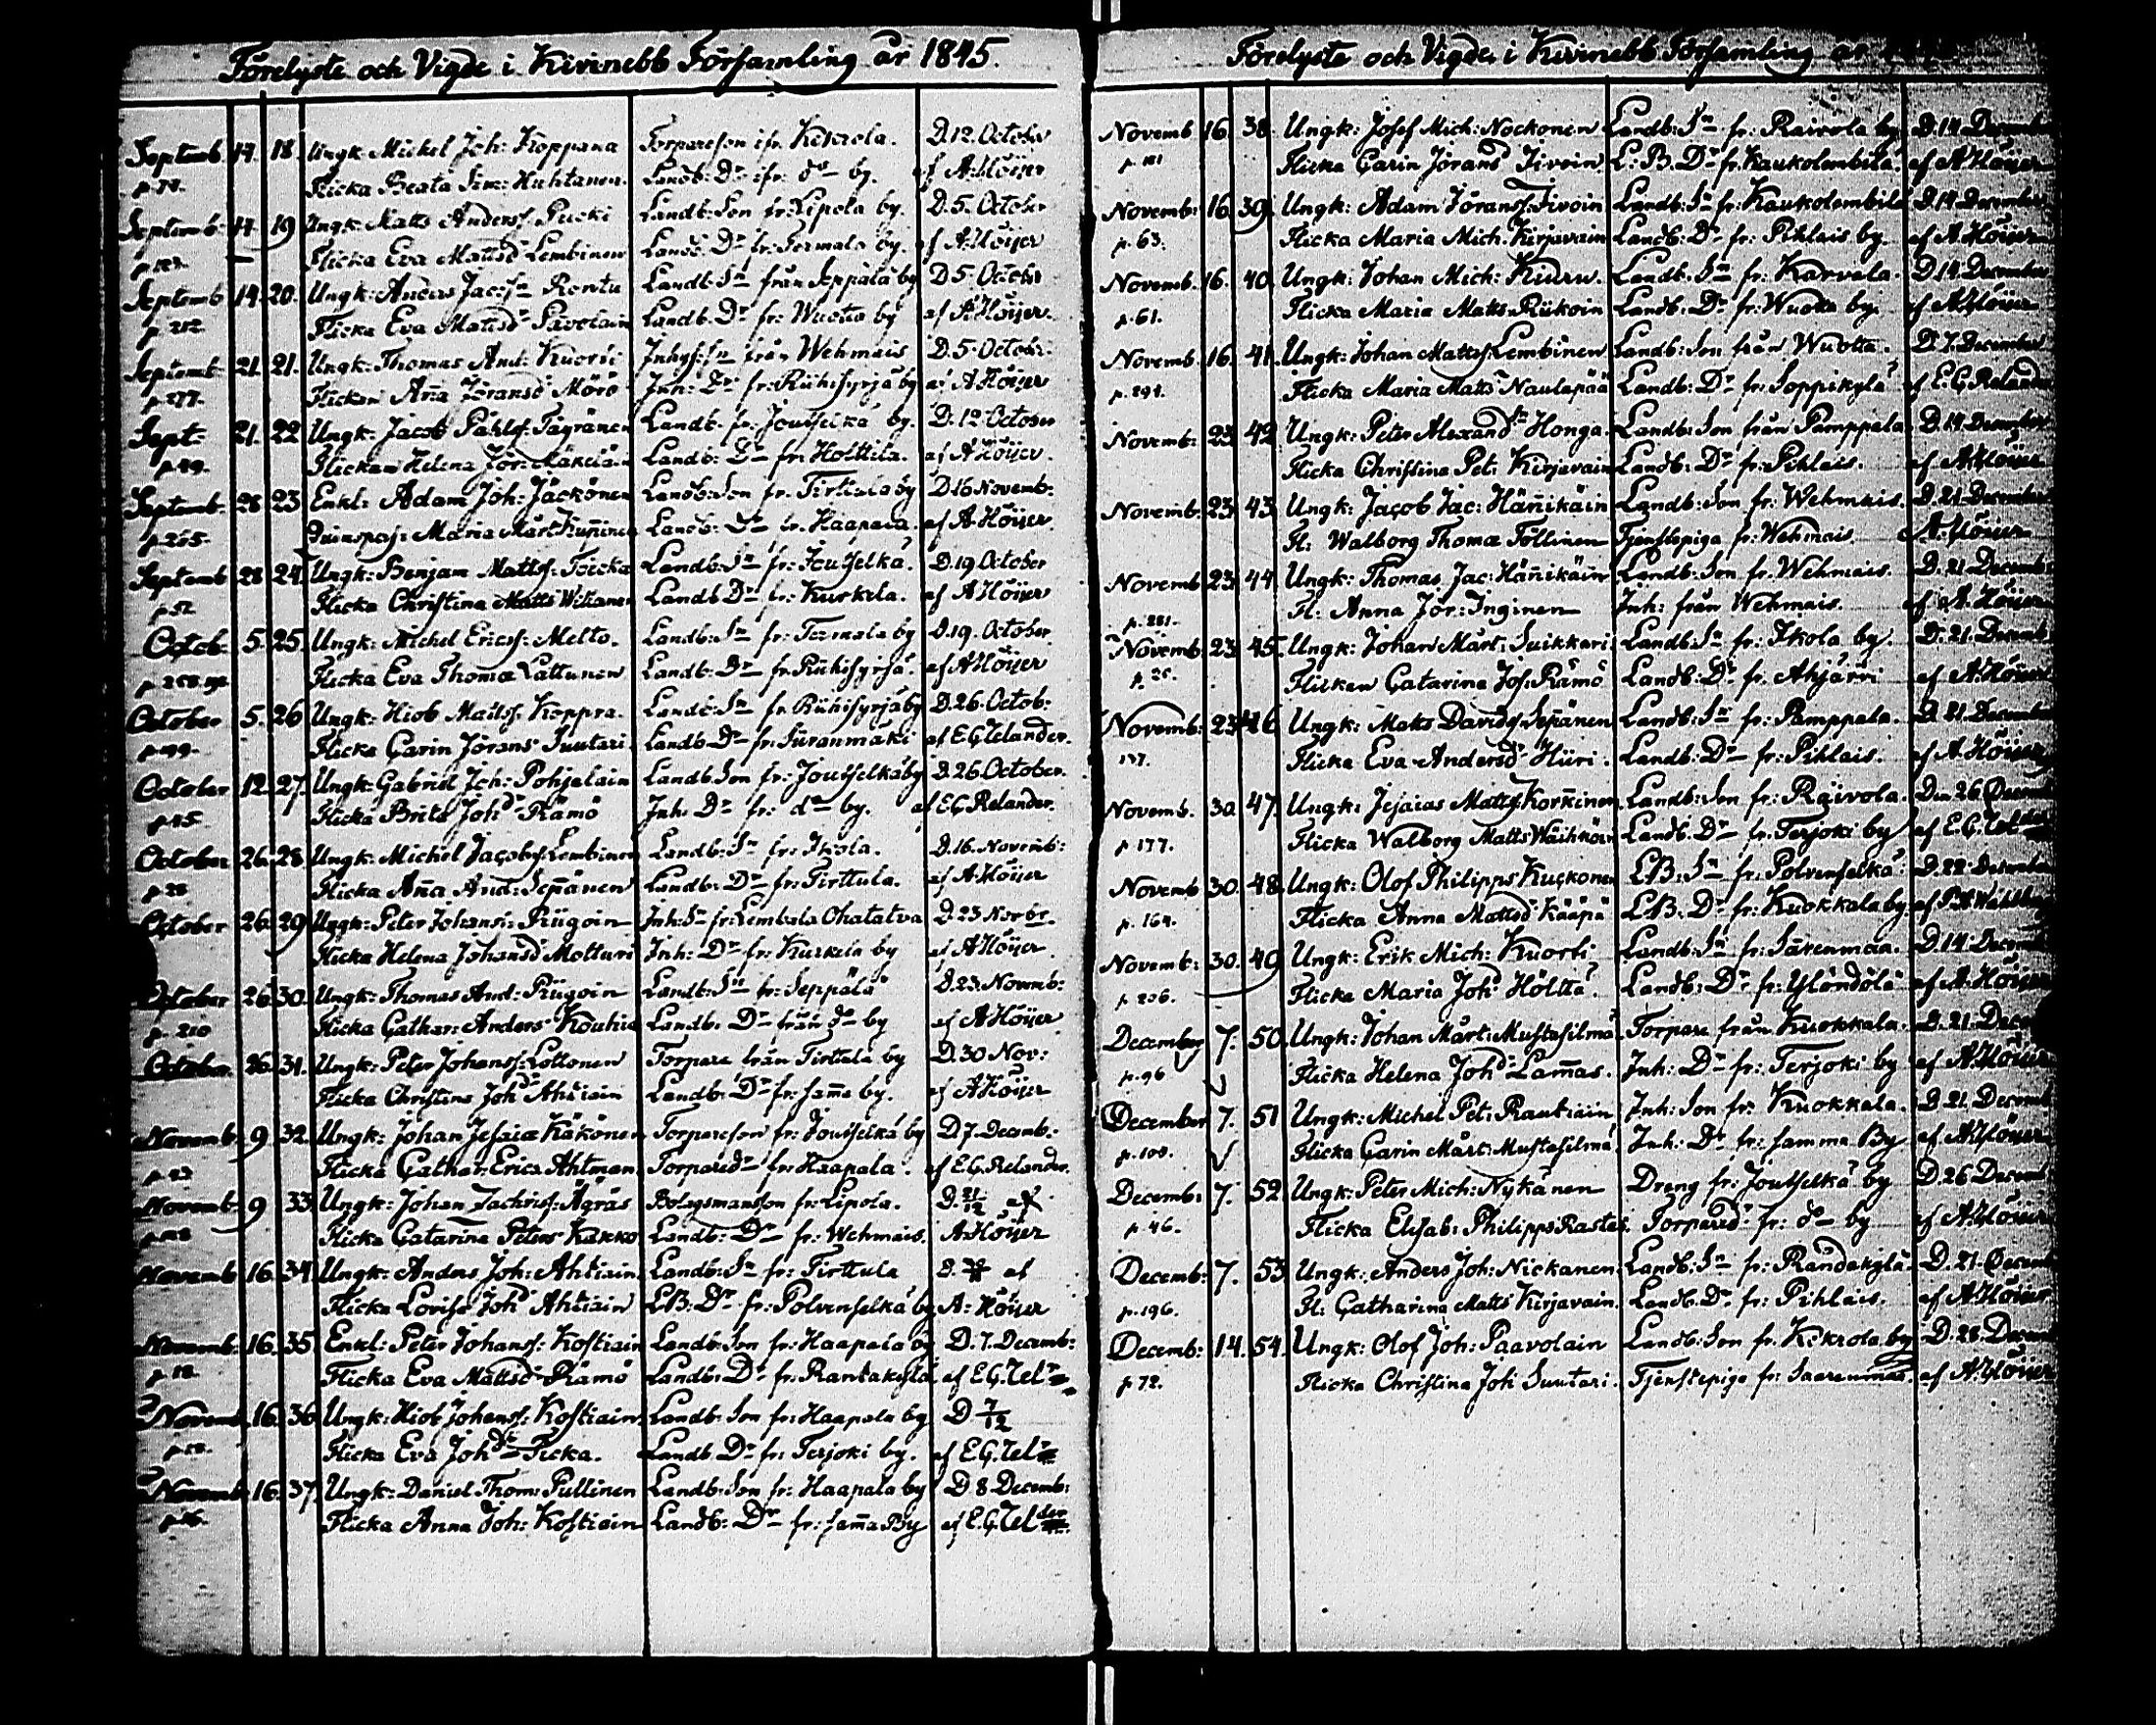 Förelyste och Vigde i Kivinebb Församling år 1845.
Septemb. 14. 18. Ungk: Michel Joh: Koppana Torpareson ifr. Kekrola. D. 12. October
p. 78. Flicka Beata Sim: Huhtanen. Landb: Dr ifr: do by. af A. Höijer
Septemb: 14. 19 Ungk: Matts Anderss: Pucki Landb: Son fr: Lipola by. D. 5. October
Flicka Eva Mattsd Lembinen Landb: Dr fr: Termala by. af A. Höijer
Septemb 14. 20. Ungk: Anders Jac: Sn Rontu Landb: Sn från Seppälä by D 5. Octobr
p. 212. Flicka Eva Mattsdr Pavolain Landb. Dr fr: Wuotta by af A. Höijer.
Septemb. 21. 21. Ungk: Thomas And: Kuorti Inhys: Sn från Wehmais D. 5. Octobr.
p. 277. Flickan Aña Jöransd Mörö Inh: Dr fr: Riihisyrjä by af A Höijer
Sept: 21. 22 Ungk: Jacob Påhls: Tägränen Landb. fr: Joutselkä by. D. 12. October
p. 49. Flickan Helena Jör: Mäkelä Landb: Dr fr: Holttila. af A Höijer.
Septemb: 28 23 Enkl: Adam Joh: Jäckönen Landb: Son fr. Tirttula by D 16 Novemb:
p. 265. Maria Mårt: Kuñinen Landb: Dr fr. Haapala. af A. Höijer.
Septemb 28 24. Ungk: Benjam Matts: Toicka Landb: Sn fr: Joutselkä. D. 19 October
p. 52 Flicka Christina Matts Wikanen Landb Dr fr: Kurkela. af A Höijer
Octob. 5. 25. Ungk: Michel Erics: Melto. Landb: Sn fr: Termala by D. 19. October
Flicka Eva Thomæ Lattunen Landb: Dr fr: Riihisyrjä. af A Höijer
October 5. 26 Ungk: Hiob Matts: Koppra. Landb: Sn fr. Riihisyrjä by D. 26. Octob:
p. 49. Flicka Carin Jörans Suutari Landb Dr fr: Suranmäki af E. G. Telander.
October 12. 27. Ungk: Gabriel Joh: Pohjalain Landb. Son fr: Joutselkä by D. 26. October.
p. 45. Flicka Brita Johd Rämö Inh: Dr fr: do by. af E. G. Relander.
October 26. 28. Ungk: Michel Jacobs: Lembinen Landb: Sn fr: Ikola. D. 16. Novemb:
p. 28 Flicka Aña And: Sepänen Landb: Dr fr: Tirttula. af A. Höijer
October 26. 29 Ungk: Peter Johans: Riigoin Inh: Sn fr: Lembala Ohatatva D. 23 Novbr.
Flicka Helena Johansd Motturi Inh: Dr fr: Kurkela by af A Höijer
October 26. 30. Ungk: Thomas And: Riigoin Landb: Sn fr: Seppälä D. 23. Novemb:
p. 210 Flicka Cathar: Anders Kouhia Landb: Dr från do by af A Höijer
October 26. 31. Ungk: Peter Johanss: Lottonen Torpare från Tirttula by D. 30 Nov:
Flicka Christina Johdr Ahtiain Landb: Dr fr: saña by. af A Höijer
Novemb. 9. 32. Ungk: Johan Jesaiæ Käkönen Torpareson fr: Joutselkä by D 7. Decemb:
p. 43 Flicka Cathar: Erics Ahtman Torparedr fr: Haapala. af E. G. Relander.
Novemb. 9 33. Ungk: Johan Zachriss: Ägräs Bolagsmansson fr: Lipola. D. 21/12 af
Flicka Catarina Peters Kakko Landb: Dr fr: Wehmais. A. Höijer
Novemb 16. 34. Ungk: Anders Joh: Ahtiain Landb: Sn fr: Tirttula D. af
Flicka Lovisa Johd Ahtiain LB: Dr fr: Polvenselkä by A: Höijer
Novemb. 16. 35. Enkl: Peter Johans: Kostiain Landb: Son fr: Haapala by D. 7. Decemb:
p. 18. Flicka Eva Mattsd Rämö Landb: Dr fr: Rantakylä. af E. G. Telr
Novemb. 16. 36. Ungk: Hiob Johanss: Kostiain Landb: Son fr: Haapala by D 7/12
p. 18. Flicka Eva Johdr Ticka. Landb Dr fr: Terjoki by. af E. G. Telr
Novemb. 16. 37. Ungk: Daniel Thom: Pullinen Landb: Son fr: Haapala by D 8 Decemb:
p. 16. Flicka Anna Joh: Kostiain Landb: Dr fr: saña By af E. G. Telder
Förelyste och Vigde i Kivinebb Församling år
Novemb 16. 38. Ungk: Josef Mich: Nockonen Landb: Sn fr. Raivola by D. 14 Decemb
p. 181 Flicka Carin Jörans Jivoin. L: B. Dr fr. Kaukolembilä af A Höijer
Novemb: 16. 39. Ungk: Adam Jörans: Tivoin Landb: Sn fr: Kaukolembilä D. 14 December
p. 63. Flicka Maria Mich. Kirjavain Landb: Dr fr: Pihlais by. af A. Höijer
Novemb. 16. 40. Ungk: Johan Mich: Kiuru. Landb. Sn fr. Karvala. D. 14. December
p. 61. Flicka Maria Matts Riikoin Landb: Dr fr: Wuotta by. af A. Höijer
Novemb. 16. 41. Ungk: Johan Matts: Lembinen Landb: Son från Wuotta. D. 7. December
p. 294. Flicka Maria Matts Naulapää Landb: Dr fr: Soppikylä af E. G. Relander
Novemb: 23 42 Ungk: Peter Alexand: Honga. Landb: Son från Pamppala. D. 14. December
Flicka Christina Pet: Kirjavain Landb: Dr fr: Pihlais. af A. Höijer
Novemb. 23 43. Ungk: Jacob Jac: Häñikäin Landb: Son fr: Wehmais. D. 21 December
Fl: Walborg Thomæ Töllinen Tjenstepiga fr: Wehmais. A. Höijer
Novemb 23. 44. Ungk: Thomas Jac: Häñikäin Landb. Son fr. Wehmais. D. 21 Decemb:
p. 281. Fl: Anna Jör: Inginen Inh: från Wehmais. af A. Höijer
Novemb. 23. 45. Ungk: Johan Mårt: Suikkari Landb: Sn fr: Ikola by. D. 21. Decemb
p. 26. Flickan Catarina Jos: Rämö Landb: Dr fr. Ahjärvi af A. Höijer
Novemb: 23 46 Ungk: Mats Davids: Sepänen Landb: Sn fr: Pamppala. D. 21. Decemb
137. Flicka Eva Andersd Hiiri. Landb: Dr fr: Pihlais. af A. Höijer
Novemb. 30. 47. Ungk: Jesaias Matts: Korkinen Landb: Son fr: Raivola. Den 26 Decemb
p. 177. Flicka Walborg Matts Wäihköin Landb. Dr fr: Terjoki by af E. G. Telder
Novemb 30. 48. Ungk: Olof Philipps Kuckonen LB: Sn fr. Polvenselkä. D. 22 December
p. 164. Flicka Anna Mattsd Kääpä LB: Dr fr: Kuokkala by. af
Novemb: 30. 49 Ungk: Erik Mich: Kuorti Landb: Sn fr: Särenmaa. D. 14. Decemb
p. 206. Flicka Maria Johd Hölttä. Landb: Dr fr: Ylöndölä af A. Höijer
December 7. 50. Ungk: Johan Mårt: Mustasilmä Torpare från Kuokkala. D. 21. Dece
p. 96 Flicka Helena Johdr Lam̄as. Inh: Dr fr: Terjoki by af A. Höijer
December 7. 51 Ungk: Michel Pet: Rautiain Inh: Son fr: Kuokkala. D 21. Decemb
p. 108. Flicka Carin Mårt: Mustasilmä Inh: Dr fr: samma By af A. Höijer
Decemb: 7. 52. Ungk: Peter Mich: Nykänen Dreng fr: Joutselkä by D. 26 Decemb
p. 46. Flicka Elisab: Philipps Rastas. Torpared: fr: do by af A. Höijer
Decemb: 7. 53 Ungk: Anders Joh: Nickanen Landb: Sn fr: Randakylä. D. 21. Decemb
p. 196. Fl: Catharina Matts Kirjavain. Landb. Dr fr: Pihlais. af A. Höijer
Decemb: 14. 54. Ungk: Olof Joh: Paavolain Landb: Son fr. Kekrola by D. 28. Decem
p. 72. Flicka Christina Joh Suutari. Tjenstepiga fr: Saarenmaa. af A. Höijer